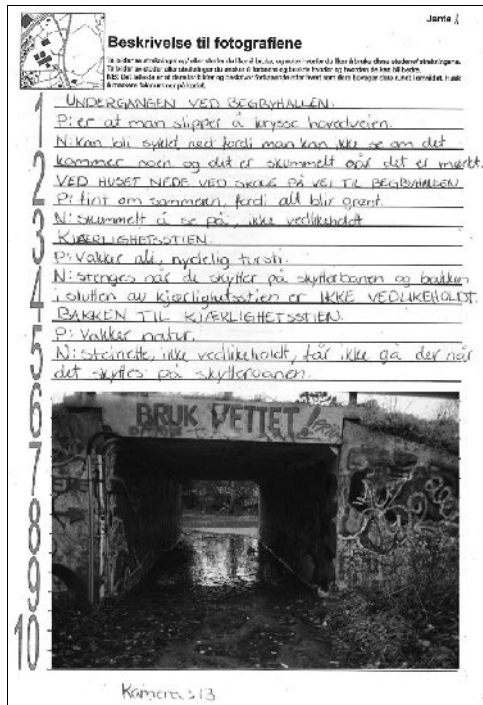 Jente
Beskrivelse til fotografiene
1 UNDERGANGEN VED BEGBYHALLEN.
P: er at man slipper å krysse hovedveien.
N: kan bli syklet ned fordi man kan ikke se om det
kommer noen og det er skummelt når det er mørkt.
2 VED HUSET NEDE VED SKOLE PÅ VEI TIL BEGBYHALLEN
P: fint om sommeren, fordi alt blir grønt.
N: skummelt å se på, ikke vedlikeholdt
3 KJÆRLIGHETSSTIEN.
P: Vakker nydelig tursti.
N: stenges når de skyter på skytterbanen og bakken
4 i slutten av kjærlighetsstien er IKKE VEDLIKEHOLDT.
BAKKEN TIL KJÆRLIGHETSSTIEN.
P: Vakker natur.
5 N: ikke vedlikeholdt, får ikke gå der når
det skytes på skytterbanen.
6
BRUK VETTET!
7
8
9
10
Kamera 13